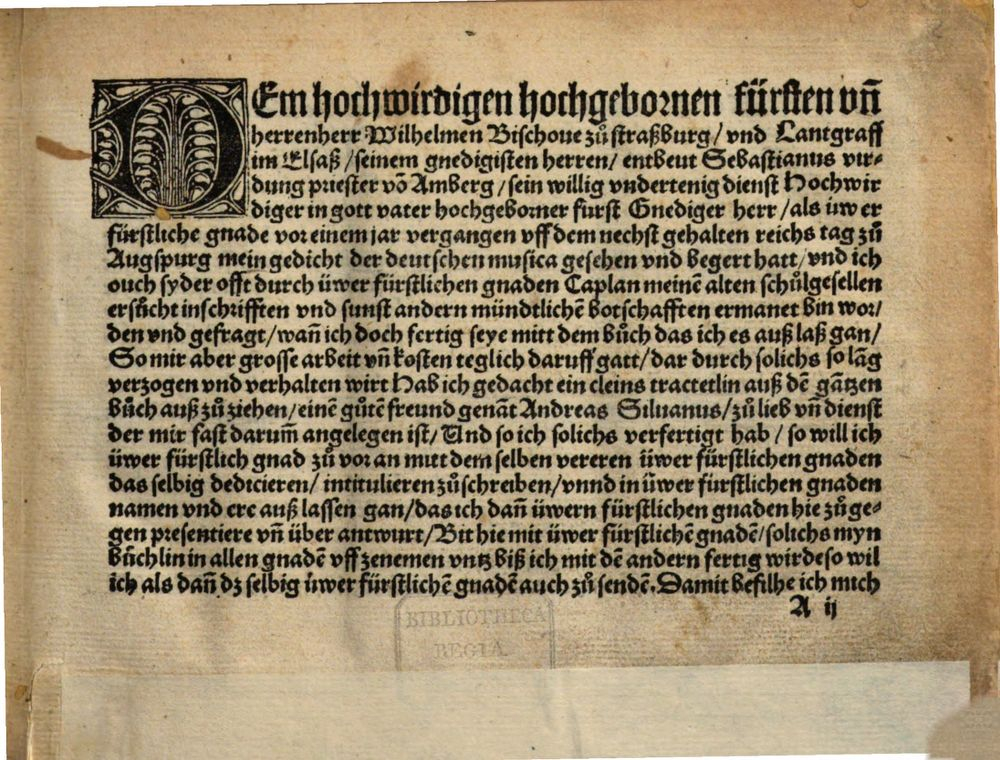 DEm hochwirdigen hochgebornen fürsten vñ
herrenherr Wilhelmen Bischoue zů straßburg/ vnd Lantgraff
im Elsaß/seinem gnedigisten herren/ entbeut Sebastianus vir-
dung priester võ Amberg/sein willig vndertenig dienst Hochwir
diger in gott vater hochgeborner furst Gnediger herr/als üw er
fürstliche gnade vor einem jar vergangen vff dem nechst gehalten reichs tag zů
Augspurg mein gedicht der deutschen musica gesehen vnd begert hatt/vnd ich
ouch syder offt durch üwer fürstlichen gnaden Caplan meinẽ alten schůlgesellen
ersůcht in schrifften vnd sunst andern mündtlichẽ botschafften ermanet bin wor/
den vnd gefragt/wañ ich doch fertig seye mitt dem bůch das ich es auß laß gan/
So mir aber grosse arbeit vñ kosten teglich daruff gatt/dar durch solichs so lãg
verzogen vnd verhalten wirt Hab ich gedacht ein cleins tractetlin auß dẽ gãtzen
bůch auß zů ziehen/einẽ gůtẽ freund genãt Andreas Siluanus/zů lieb vñ dienst
der mir fast darum̃ angelegen ist/Und so ich solichs verfertigt hab/so will ich
üwer fürstlich gnad zů vor an mitt dem selben vereren üwer fürstlichen gnaden
das selbig dedicieren/ intitulieren zů schreiben/vnnd in üwer furstlichen gnaden
namen vnd ere auß lassen gan/das ich dañ üwern fürstlichen gnaden hie zů ge-
gen presentiere vñ über antwurt/Bit hie mit üwer fürstlichẽ gnadẽ/solichs myn
bůchlin in allen gnadẽ vff zenemen vntz biß ich mit dẽ andern fertig wirdeso wil
ich als dañ dz selbig üwer fürstlichẽ gnadẽ auch zů sendẽ.Damit befilhe ich mich
A ij
BIBLIOTHECA
REGIA